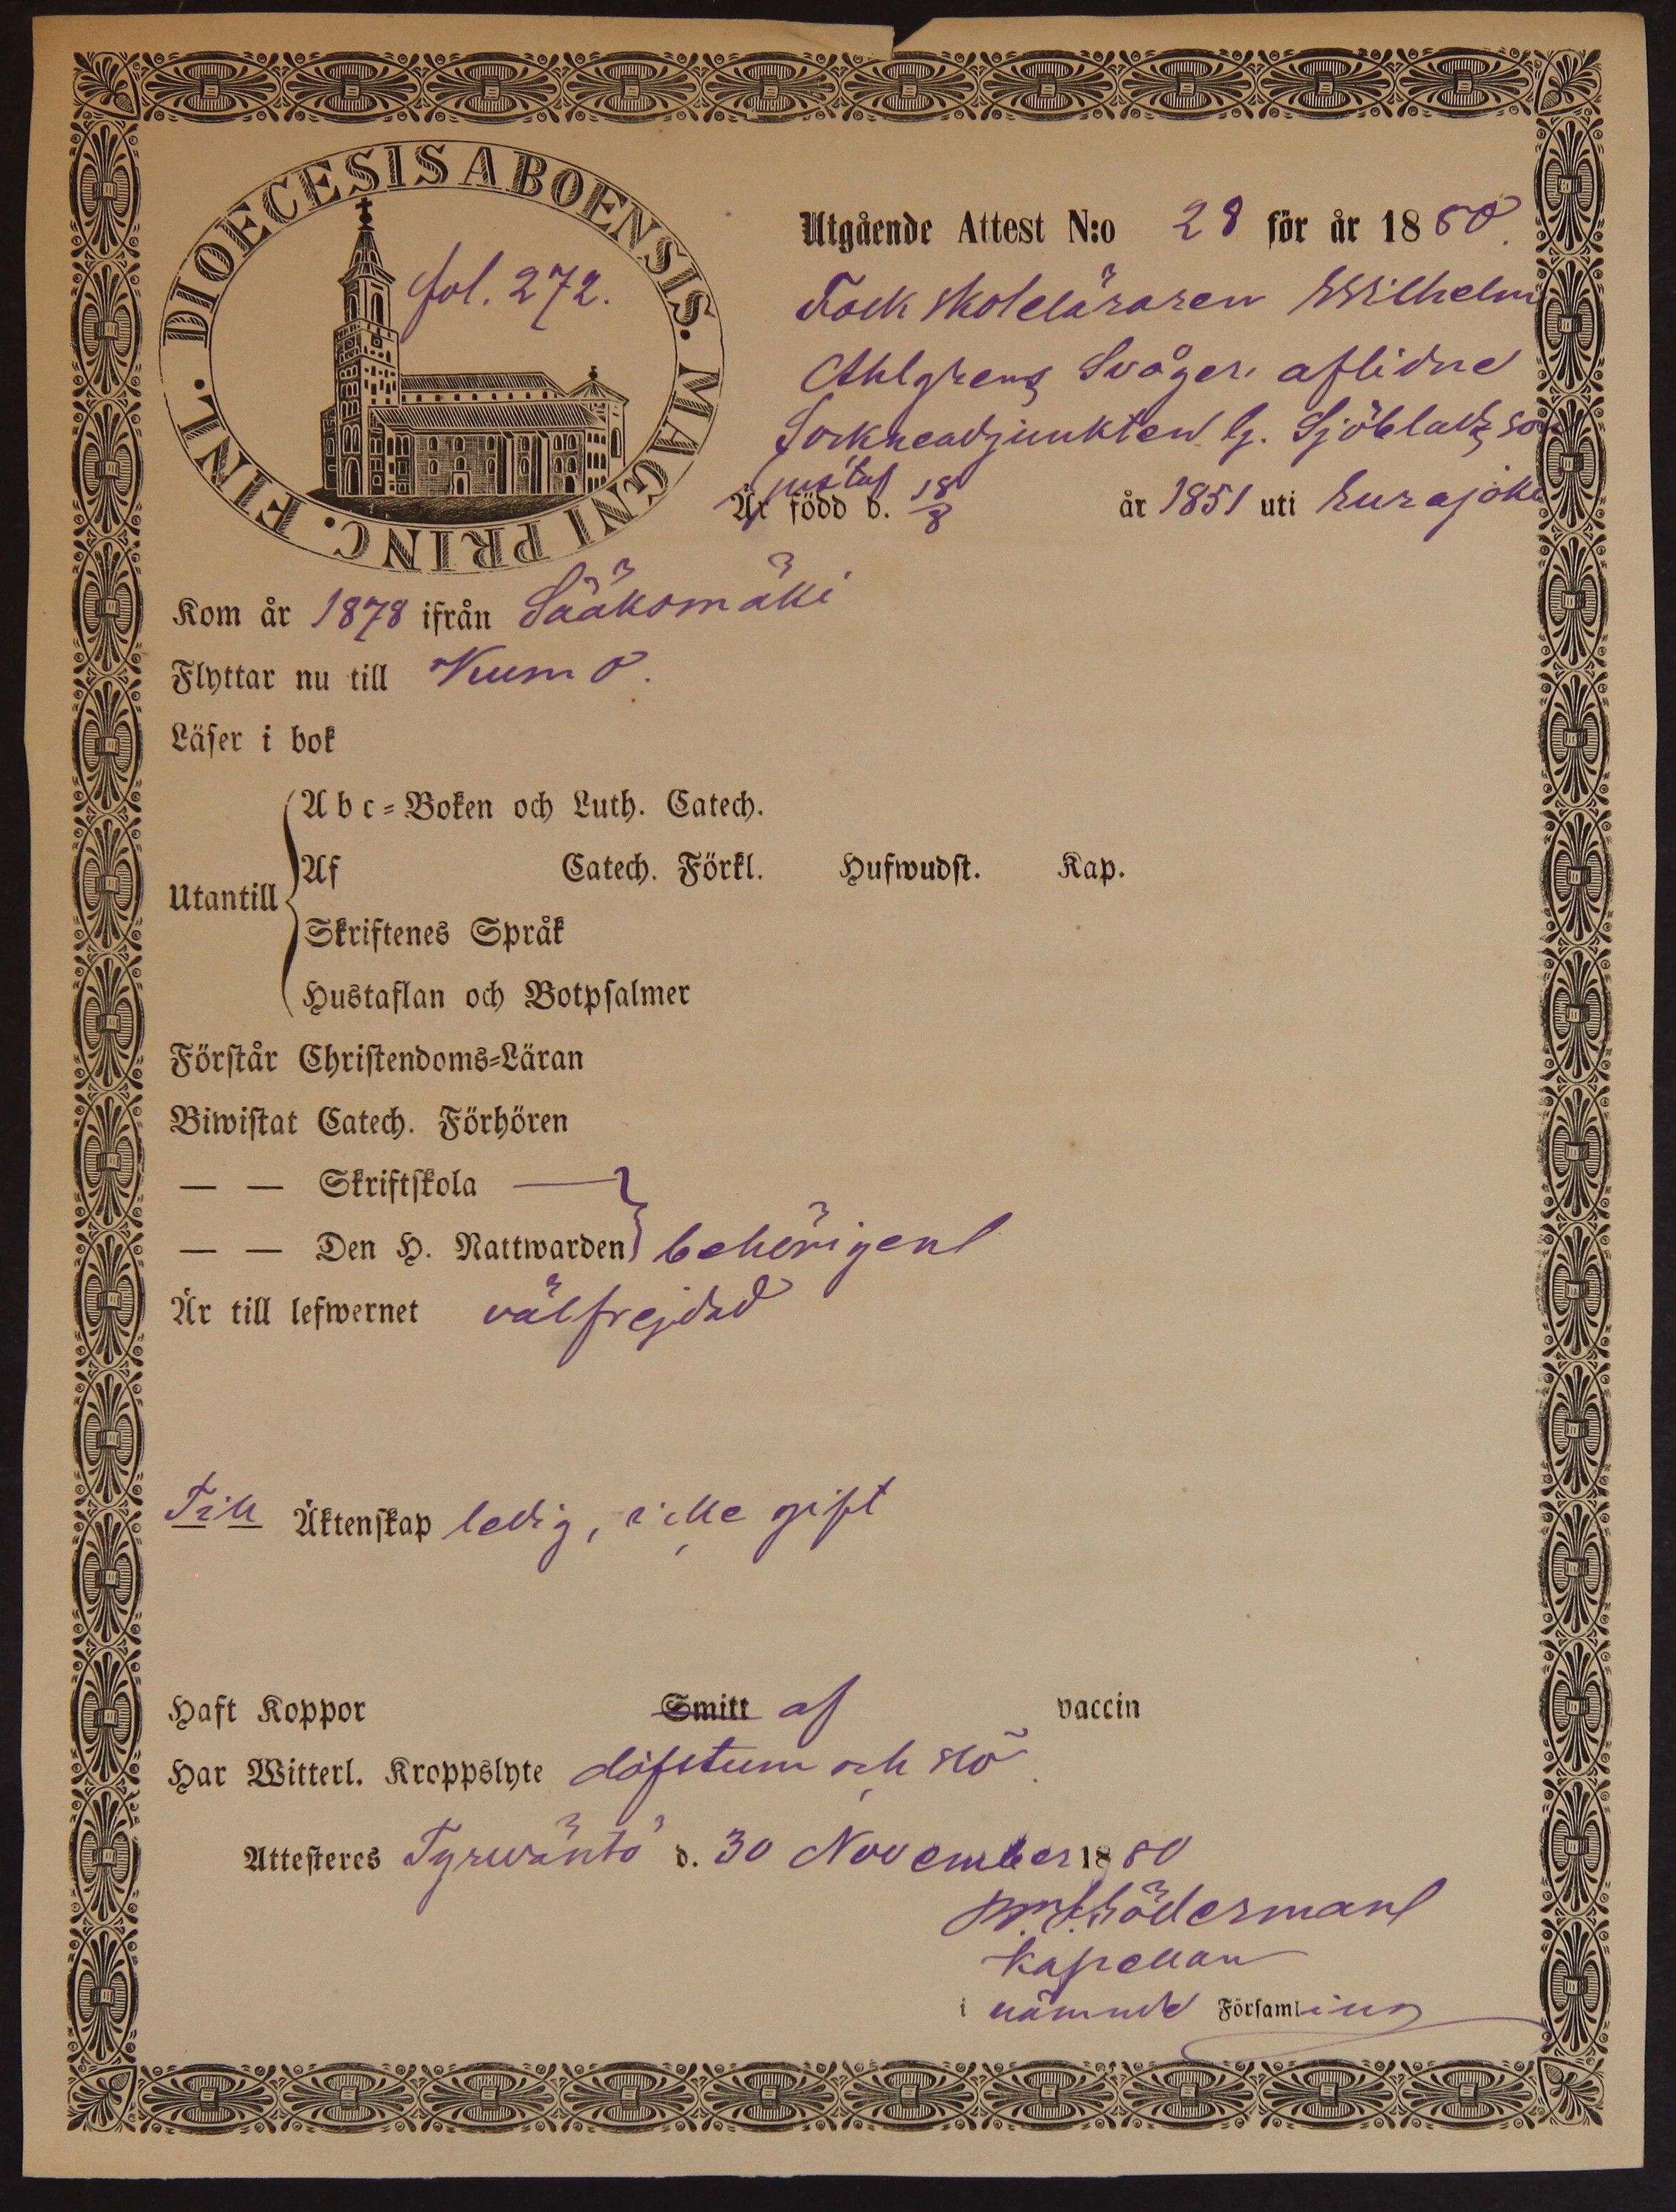 DIOECESIS ABOENSIS. MAGNI PRINC. FINL.
fol. 272.
Utgående Attest N:o 28 för år 1880.
Folkskoleläraren Wilhelm
Ahlgrens Svåger, aflidne
Sockneadjunkten G. Sjöblads son
Gustaf
Är född d. 18/8 år 1851 uti Eurajoki
Kom år 1878 ifrån Sääksmäki
Flyttar nu till Kumo.
Läser i bok
Utantill
Abc-Boken och Luth. Catech.
Af Catech. Förkl. Hufwudst. Kap.
Skriftenes Språk
Hustaflan och Botpsalmer
Förstår Christendoms-Läran
Biwistat Catech. Förhören
— — Skriftskola —
— — Den H. Nattwarden behörigen
Är till lefwernet välfrejdad
Till Äktenskap ledig, icke gift
Haft Koppor Smitt af vaccin
Har Witterl. Kroppslyte döfstum och slö.
Attesteres Tyrwäntö d. 30 November 1880
Söderman
Kapellan
i nämnde Församling